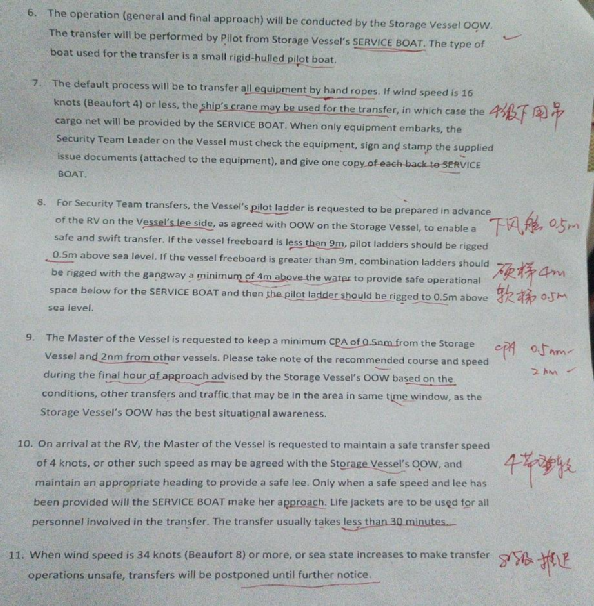 6. The operation (general and final approach) will be conducted by the Storage Vessel OOW.
The transfer will be performed by Pilot from Storage Vessel's SERVICE BOAT. The type of
boat used for the transfer is a small rigid-hulled pilot boat.
7. The default process will be to transfer all equipment by hand ropes. If wind speed is 16
knots (Beaufort 4) or less, the ship's crane may be used for the transfer, in which case the
4级下用吊
cargo net will be provided by the SERVICE BOAT. When only equipment embarks, the
Security Team Leader on the Vessel must check the equipment, sign and stamp the supplied
issue documents (attached to the equipment), and give one copy of each back to SERVICE
BOAT.
8. For Security Team transfers, the Vessel's pilot ladder is requested to be prepared in advance
of the RV on the Vessel's lee side, as agreed with OOW on the Storage Vessel, to enable a
下风舷 0.5m
safe and swift transfer. If the vessel freeboard is less then 9m, pilot ladders should be rigged
0.5m above sea level. If the vessel freeboard is greater than 9m, combination ladders should
硬梯4m
be rigged with the gangway a minimum of 4m above the water to provide safe operational
space below for the SERVICE BOAT and then the pilot ladder should be rigged to 0.5m above
软梯0.5m
sea level.
9. The Master of the Vessel is requested to keep a minimum CPA of 0.5nm from the Storage
CPA 0.5nm
Vessel and 2nm from other vessels. Please take note of the recommended course and speed
2nm
during the final hour of approach advised by the Storage Vessel's OOW based on the
conditions, other transfers and traffic that may be in the area in same time window, as the
Storage Vessel's OOW has the best situational awareness.
10. On arrival at the RV, the Master of the Vessel is requested to maintain a safe transfer speed
of 4 knots, or other such speed as may be agreed with the Storage Vessel's OOW, and
4节
maintain an appropriate heading to provide a safe lee. Only when a safe speed and lee has
been provided will the SERVICE BOAT make her approach. Life jackets are to be used for all
personnel involved in the transfer. The transfer usually takes less than 30 minutes.
11. When wind speed is 34 knots (Beaufort 8) or more, or sea state increases to make transfer
8级 推迟
operations unsafe, transfers will be postponed until further notice.